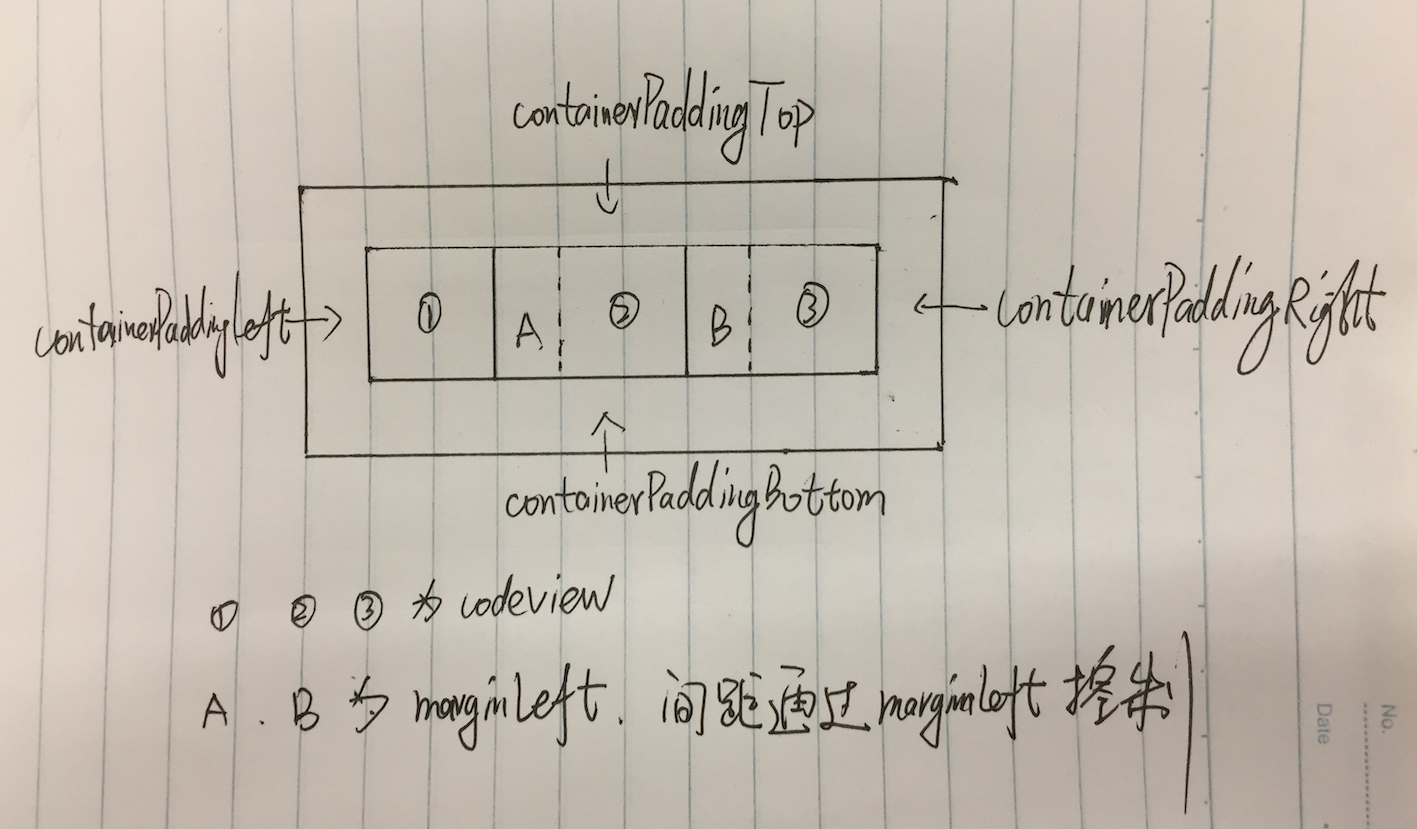 containerPaddingTop
containerPaddingLeft
① A ② B ③
containerPaddingRight
containerPaddingBottom
① ② ③ 为 codeview
A . B 为 marginLeft. 间距通过marginLeft 控制
No.
Date